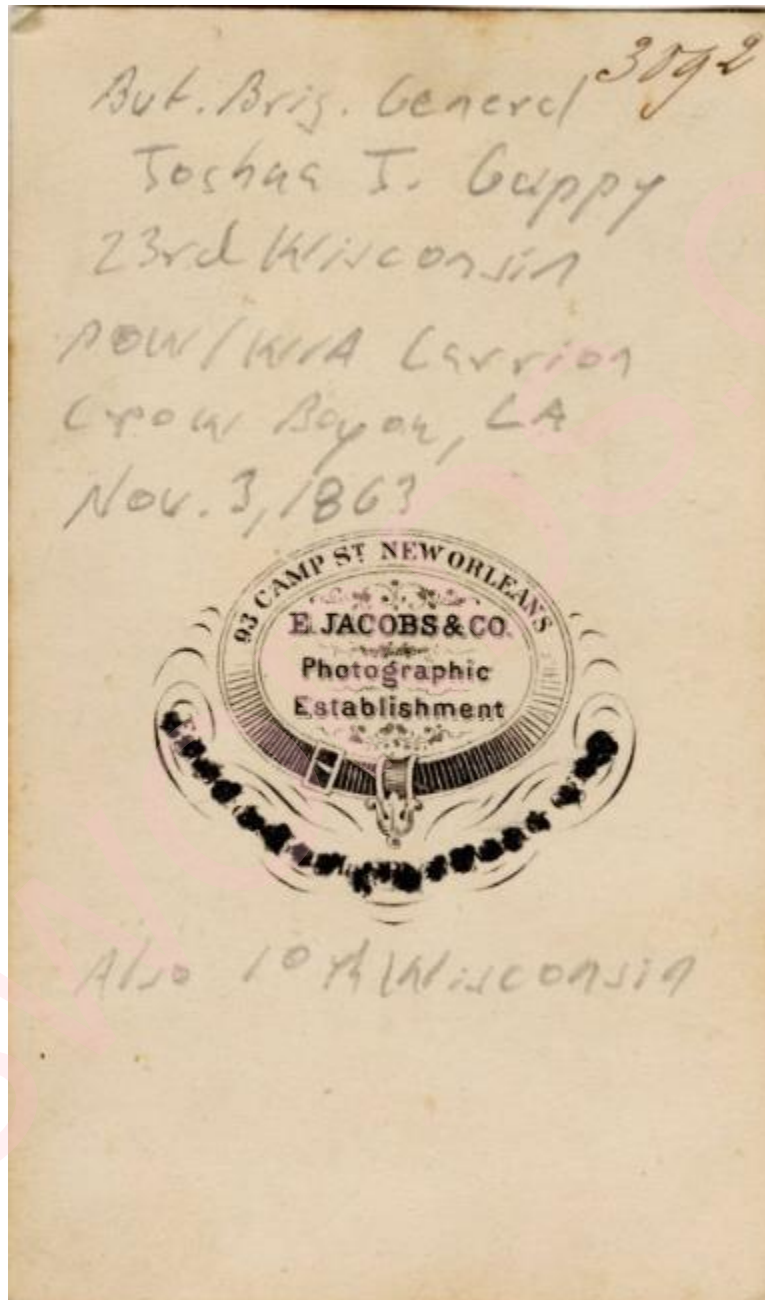 3092
Bvt. Brig. General
Joshua J. Guppy
23rd Wisconsin
POW/WIA Carrion
Crow Bayou, LA
Nov. 3, 1863
93 CAMP ST NEW ORLEANS
E. JACOBS & CO.
Photographic
Establishment
Also 10th Wisconsin